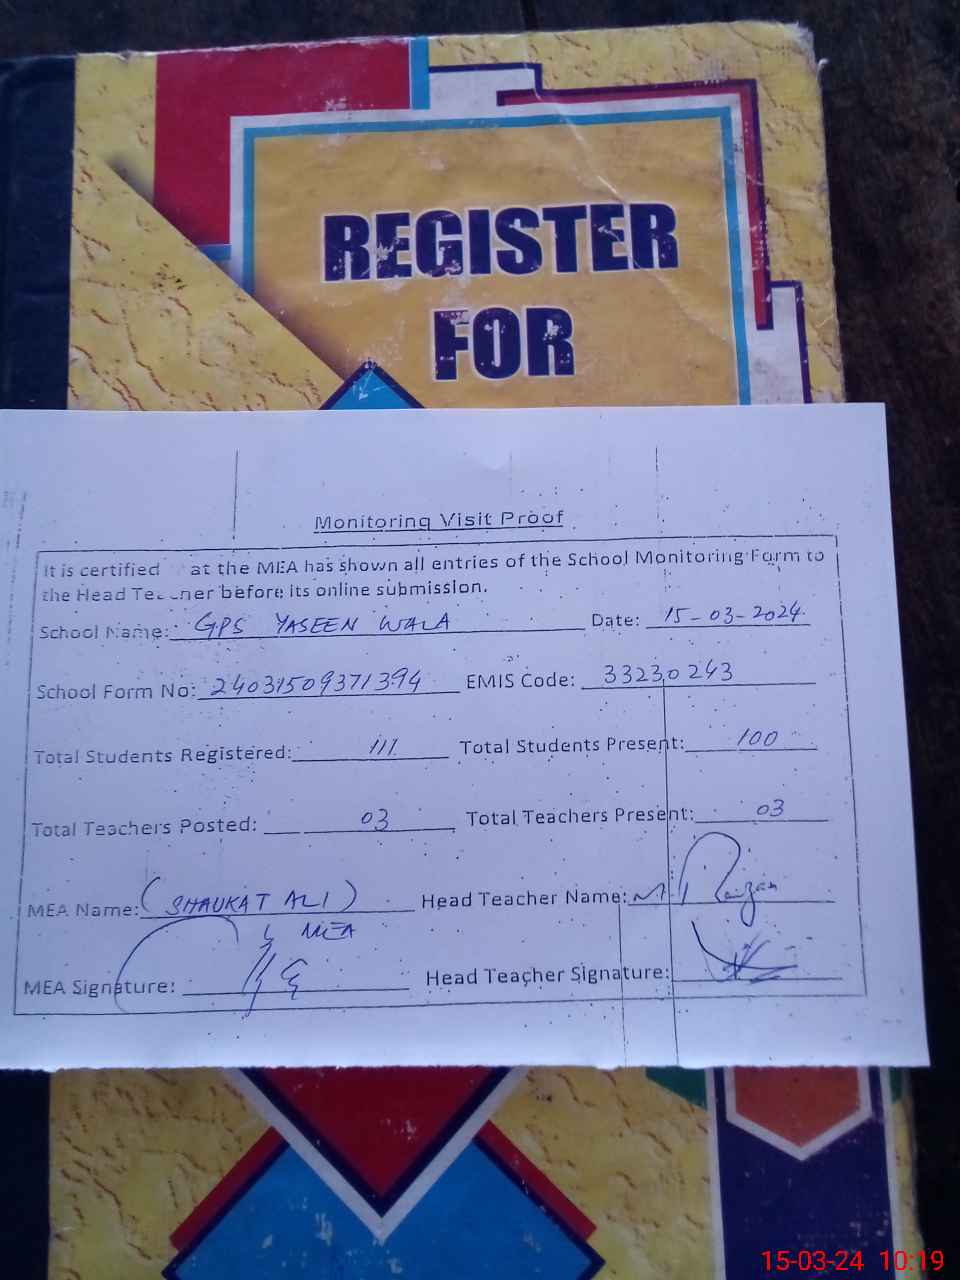 REGISTER
FOR
Monitoring Visit Proof
It is certified at the MEA has shown all entries of the School Monitoring Form to
the Head Teacher before its online submission.
School Name: GPS YASEEN WALA Date: 15-03-2024
School Form No: 24031509371394 EMIS Code: 33230243
Total Students Registered: 111 Total Students Present: 100
Total Teachers Posted: 03 Total Teachers Present: 03
MEA Name: (SHAUKAT ALI) Head Teacher Name: M.
MEA
MEA Signature: Head Teacher Signature:
15-03-24 10:19